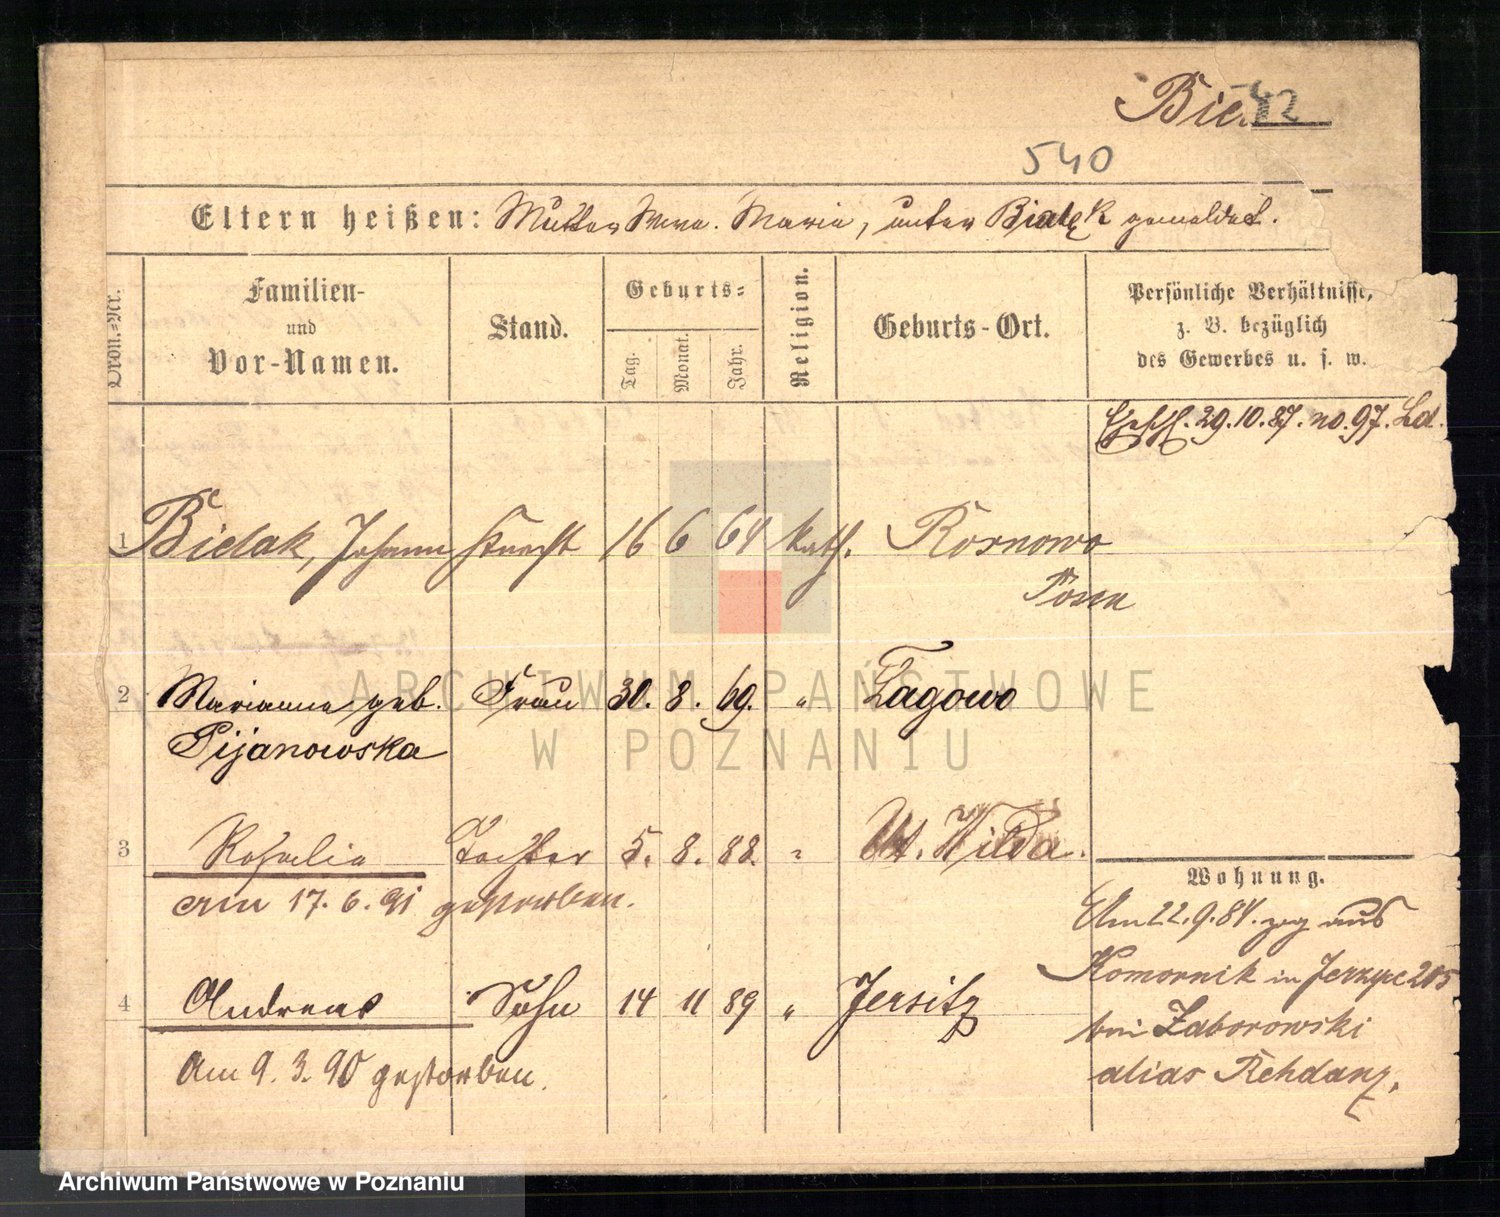 Bie. 42
540
Eltern heißen: Mutter Wwe. Maria, unter Bialek gemeldet.
Ordn.-Nr.
Familien-
und
Vor-Namen.
Stand.
Geburts-
Tag.
Monat.
Jahr.
Religion.
Geburts-Ort.
Persönliche Verhältnisse,
z. B. bezüglich
des Gewerbes u. s. w.
29.10.87. no. 97.
1 Bielak, Johann Knecht 16 6 64 kath. Rosnowo
Posen
2 Marianna geb. Frau 30. 8. 69. " Zagowo
Pijanowska
3 Rosalia Tochter 5. 8. 88. " Ut. Wilda.
Wohnung.
am 17. 6. 91 gestorben.
Am 22.9.84. zog aus
Komornik in Jerzyce 205
bei Zaborowski
alias Rehdanz.
4 Andreas Sohn 14 11 89 " Jersitz
Am 9. 3. 90 gestorben.
ARCHIWUM PAŃSTWOWE
W POZNANIU
Archiwum Państwowe w Poznaniu